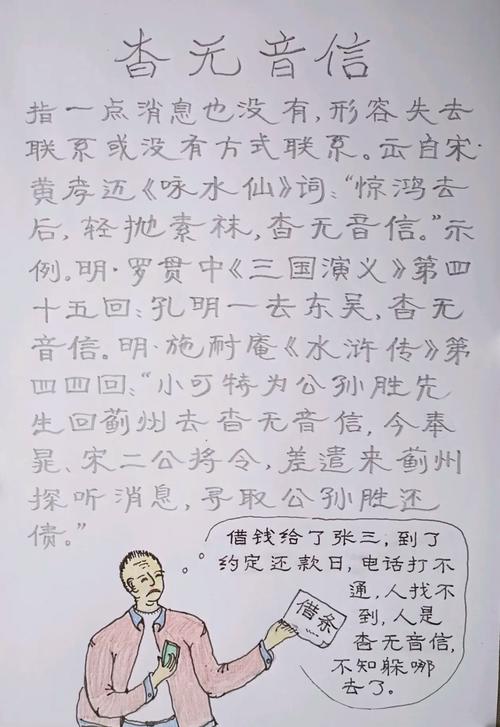 杳无音信
指一点消息也没有,形容失去
联系或没有方式联系。出自宋·
黄孝迈《咏水仙》词:“惊鸿去
后,轻抛素袜,杳无音信。”示
例。明·罗贯中《三国演义》第四
十五回:孔明一去东吴,杳无
音信。明·施耐庵《水浒传》第
四四回:“小可特为公孙胜先
生回蓟州去杳无音信,今奉
晁、宋二公将令,差遣来蓟州
探听消息,寻取公孙胜还
债。”
借钱给了张三,到了
约定还款日,电话打不
通,人找不
到,人是
杳无音信,
不知躲哪
去了。
借条